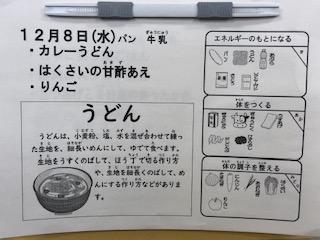 12月8日(水)パン 牛乳
・カレーうどん
・はくさいの甘酢あえ
・りんご
うどん
うどんは、小麦粉、塩、水を混ぜ合わせて練っ
た生地を、細長いめんにして、ゆでて食べます。
生地をうすくのばして、ほう丁で切る作り方
や、生地を細長くのばして、め
んにする作り方などがありま
す。
エネルギーのもとになる
体をつくる
体の調子を整える